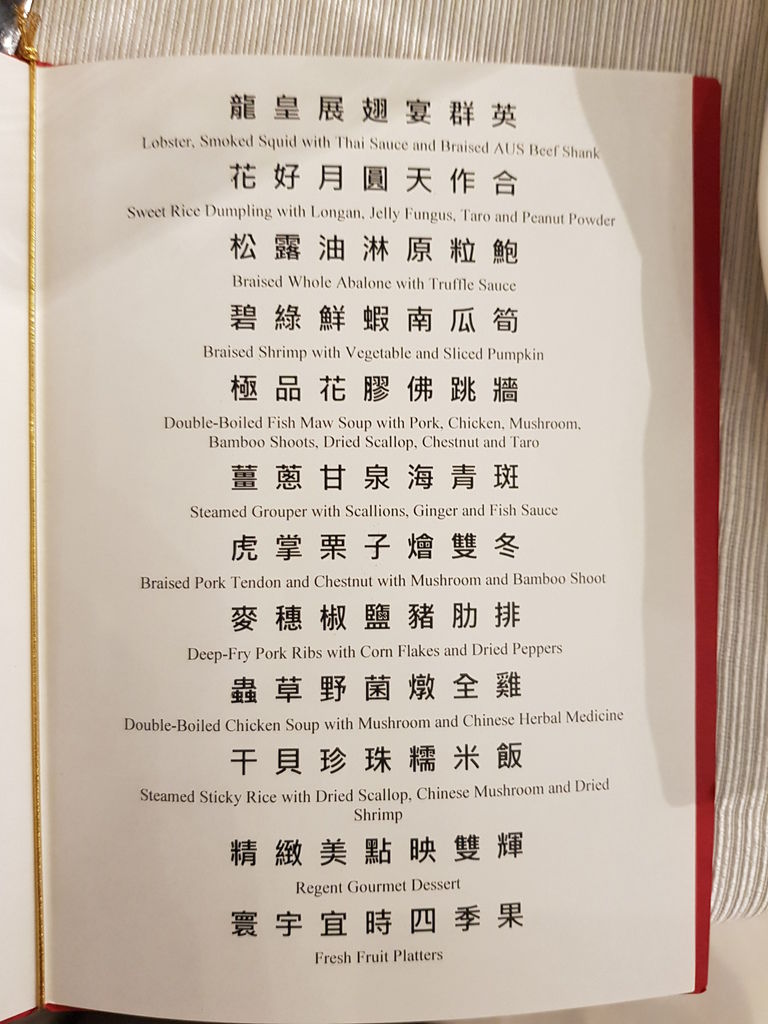 龍皇展翅宴群英
Lobster, Smoked Squid with Thai Sauce and Braised AUS Beef Shank
花好月圓天作合
Sweet Rice Dumpling with Longan, Jelly Fungus, Taro and Peanut Powder
松露油淋原粒鮑
Braised Whole Abalone with Truffle Sauce
碧綠鮮蝦南瓜筍
Braised Shrimp with Vegetable and Sliced Pumpkin
極品花膠佛跳牆
Double-Boiled Fish Maw Soup with Pork, Chicken, Mushroom,
Bamboo Shoots, Dried Scallop, Chestnut and Taro
薑蔥甘泉海青斑
Steamed Grouper with Scallions, Ginger and Fish Sauce
虎掌栗子燴雙冬
Braised Pork Tendon and Chestnut with Mushroom and Bamboo Shoot
麥穗椒鹽豬肋排
Deep-Fry Pork Ribs with Corn Flakes and Dried Peppers
蟲草野菌燉全雞
Double-Boiled Chicken Soup with Mushroom and Chinese Herbal Medicine
干貝珍珠糯米飯
Steamed Sticky Rice with Dried Scallop, Chinese Mushroom and Dried
Shrimp
精緻美點映雙輝
Regent Gourmet Dessert
寰宇宜時四季果
Fresh Fruit Platters